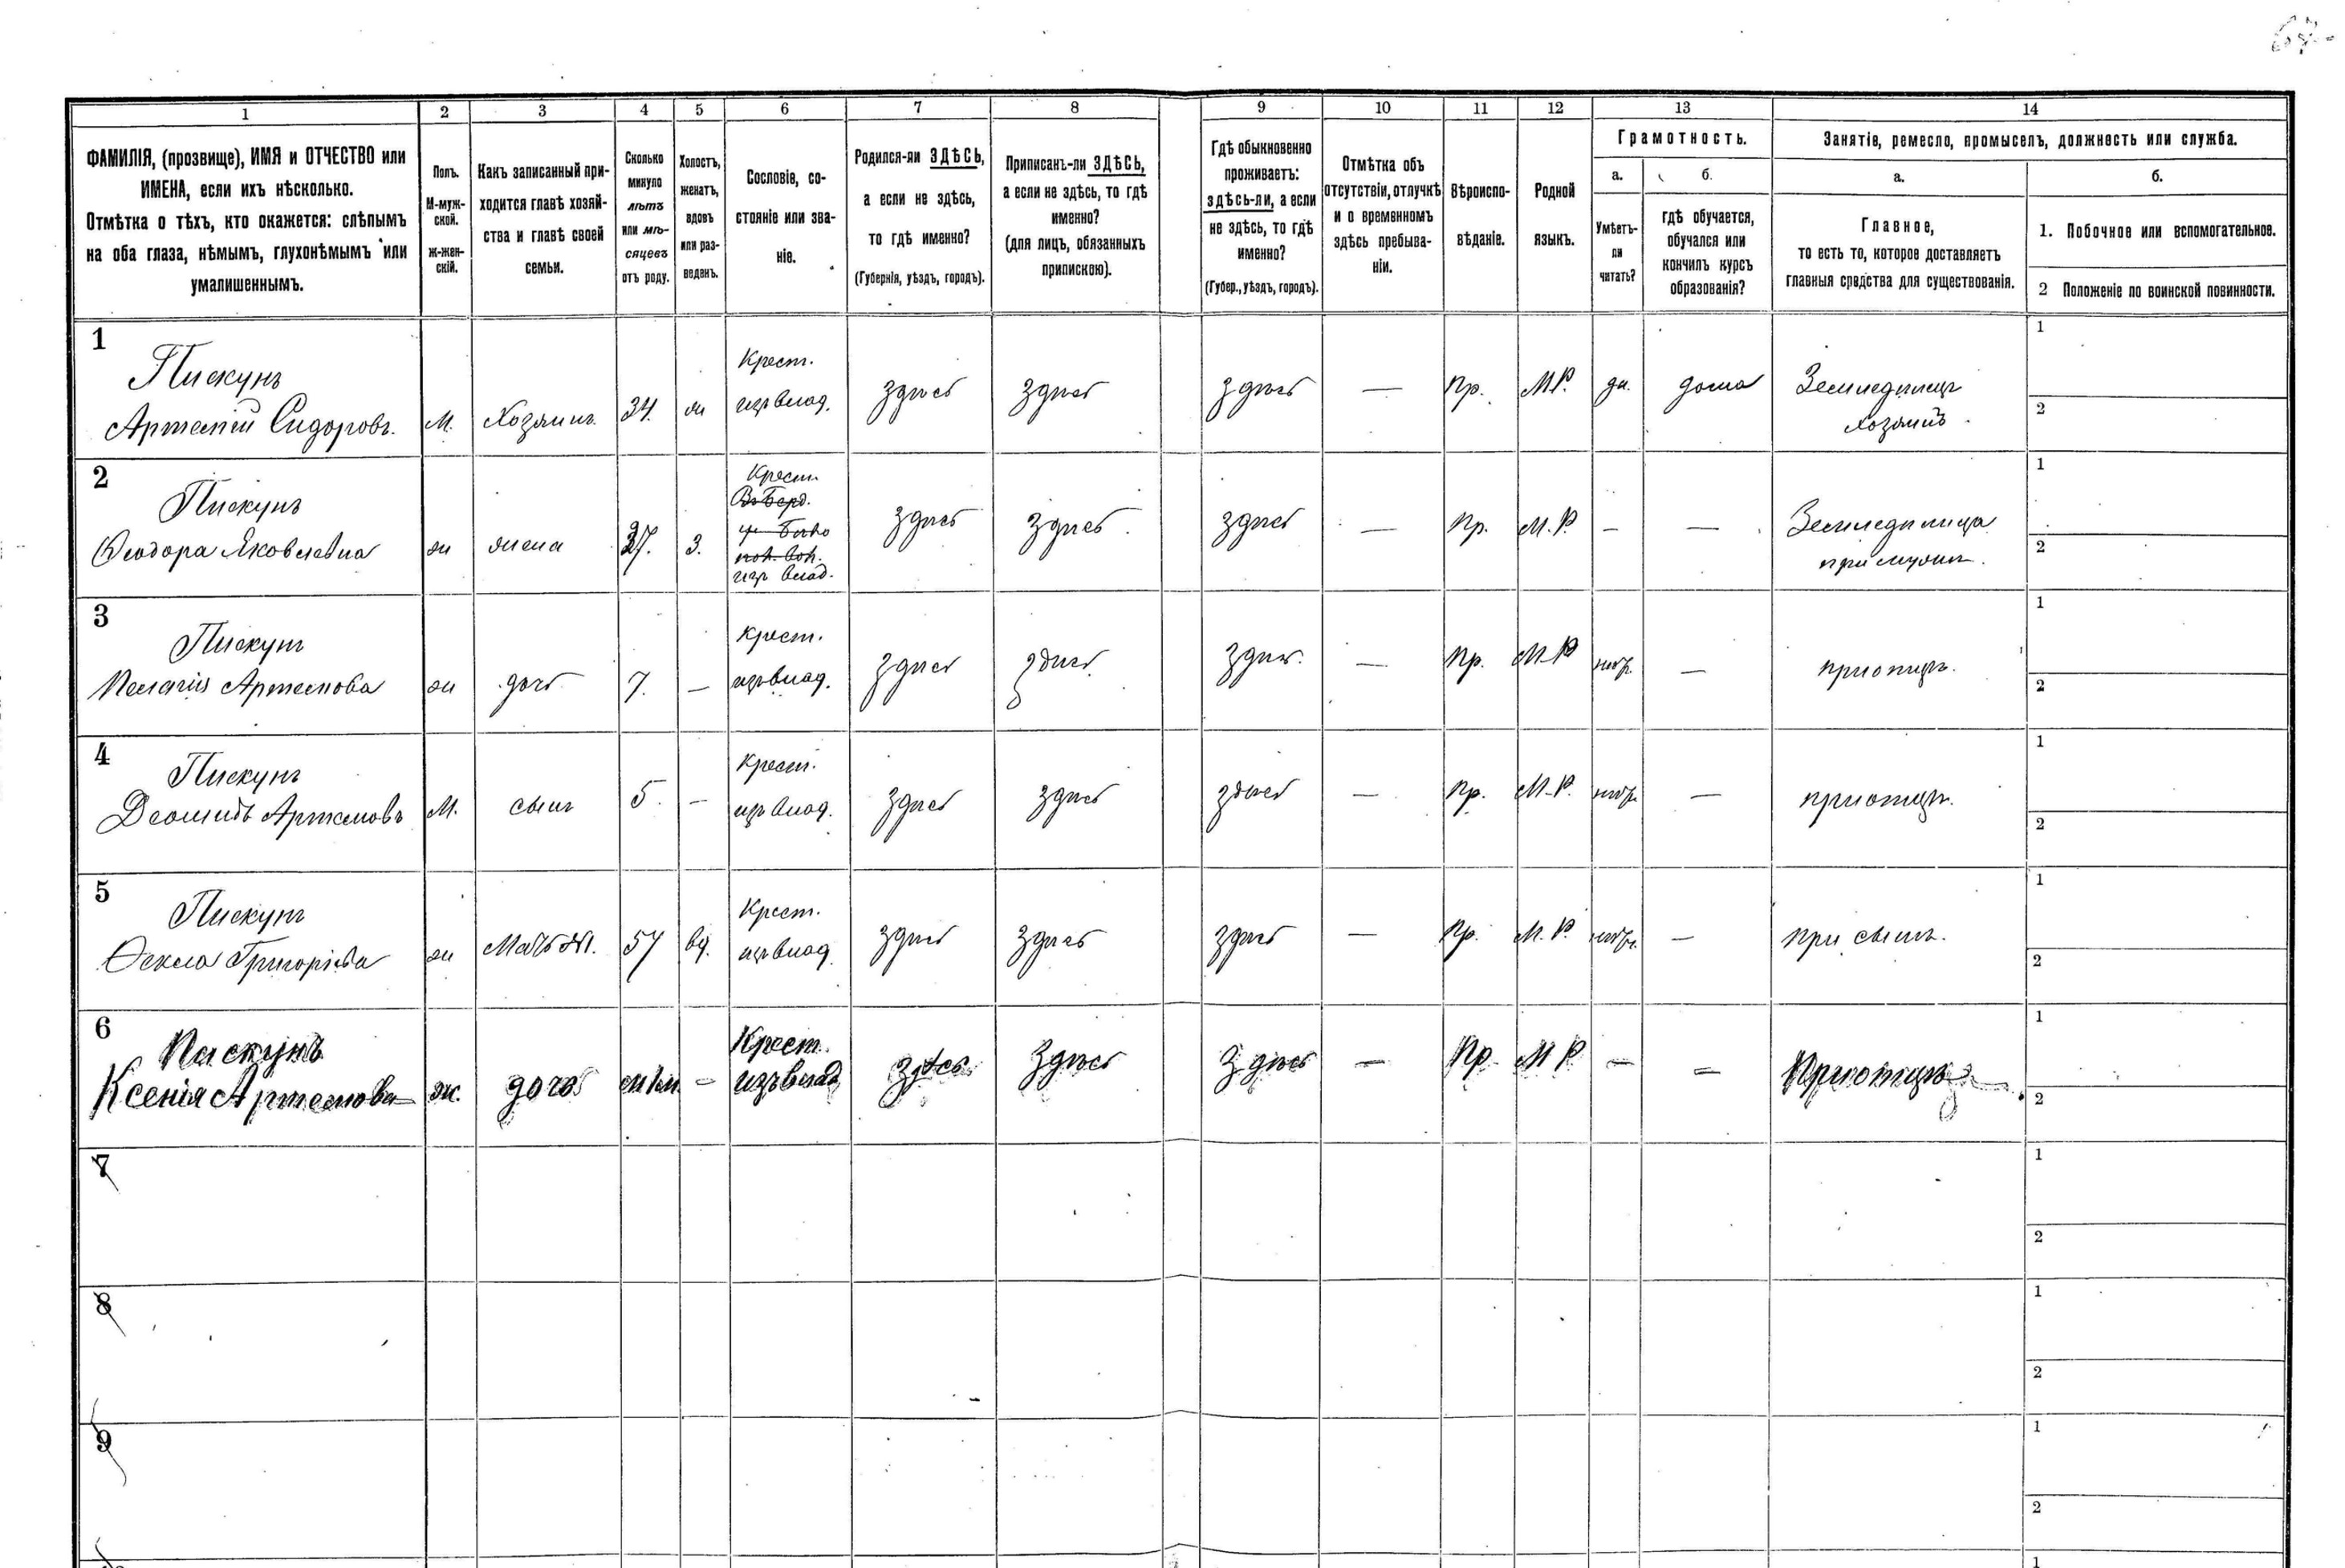 1 2 3 4 5 6 7 8 9 10 11 12 13 14
ФАМИЛІЯ, (прозвище), ИМЯ и ОТЧЕСТВО или
ИМЕНА, если ихъ нѣсколько.
Отмѣтка о тѣхъ, кто окажется: слѣпымъ
на оба глаза, нѣмымъ, глухонѣмымъ или
умалишеннымъ.
Полъ.
М-муж-
ской.
ж-жен-
скій.
Какъ записанный при-
ходится главѣ хозяй-
ства и главѣ своей
семьи.
Сколько
минуло
лѣтъ
или мѣ-
сяцевъ
отъ роду.
Холостъ,
женатъ,
вдовъ
или раз-
веденъ.
Сословіе, со-
стояніе или зва-
ніе.
Родился-ли ЗДѢСЬ,
а если не здѣсь,
то гдѣ именно?
(Губернія, уѣздъ, городъ).
Приписанъ-ли ЗДѢСЬ,
а если не здѣсь, то гдѣ
именно?
(для лицъ, обязанныхъ
припискою).
Гдѣ обыкновенно
проживаетъ:
здѣсь-ли, а если
не здѣсь, то гдѣ
именно?
(Губер., уѣздъ, городъ).
Отмѣтка объ
отсутствіи, отлучкѣ
и о временномъ
здѣсь пребыва-
ніи.
Вѣроиспо-
вѣданіе.
Родной
языкъ.
Грамотность.
а.
Умѣетъ-
ли
читать?
б.
гдѣ обучается,
обучался или
кончилъ курсъ
образованія?
Занятіе, ремесло, промыселъ, должность или служба.
а.
Главное,
то есть то, которое доставляетъ
главныя средства для существованія.
б.
1. Побочное или вспомогательное.
2 Положеніе по воинской повинности.
1
Пискунъ
Артемій Сидоровъ. М. Хозяинъ 34. ж
Крест.
изъ влад. здѣсь здѣсь здѣсь — Пр. М.Р. да. дома
Земледѣлецъ
хозяинъ.
1
2
2
Пискунъ
Ѳеодора Яковлевна ж жена 37. З.
Крест.
изъ влад. здѣсь здѣсь здѣсь — Пр. М.Р — —
Земледѣлица
при мужѣ.
1
2
3
Пискунъ
Пелагія Артемова ж дочь 7. —
Крест.
изъ влад. здѣсь здѣсь здѣсь — Пр. М.Р — при отцѣ.
1
2
4
Пискунъ
Деомидъ Артемовъ М. сынъ 5. —
Крест.
изъ влад. здѣсь здѣсь здѣсь — Пр. М.Р. — при отцѣ.
1
2
5
Пискунъ
Ѳекла Григоріева ж Мать хз. 57 вд.
Крест.
изъ влад. здѣсь здѣсь здѣсь — Пр. М.Р. — при сынѣ.
1
2
6
Пискунъ
Ксенія Артемова ж. дочь —
Крест.
изъ влад. здѣсь здѣсь здѣсь — Пр. М Р — — При отцѣ
1
2
7
1
2
8
1
2
9
1
2
1